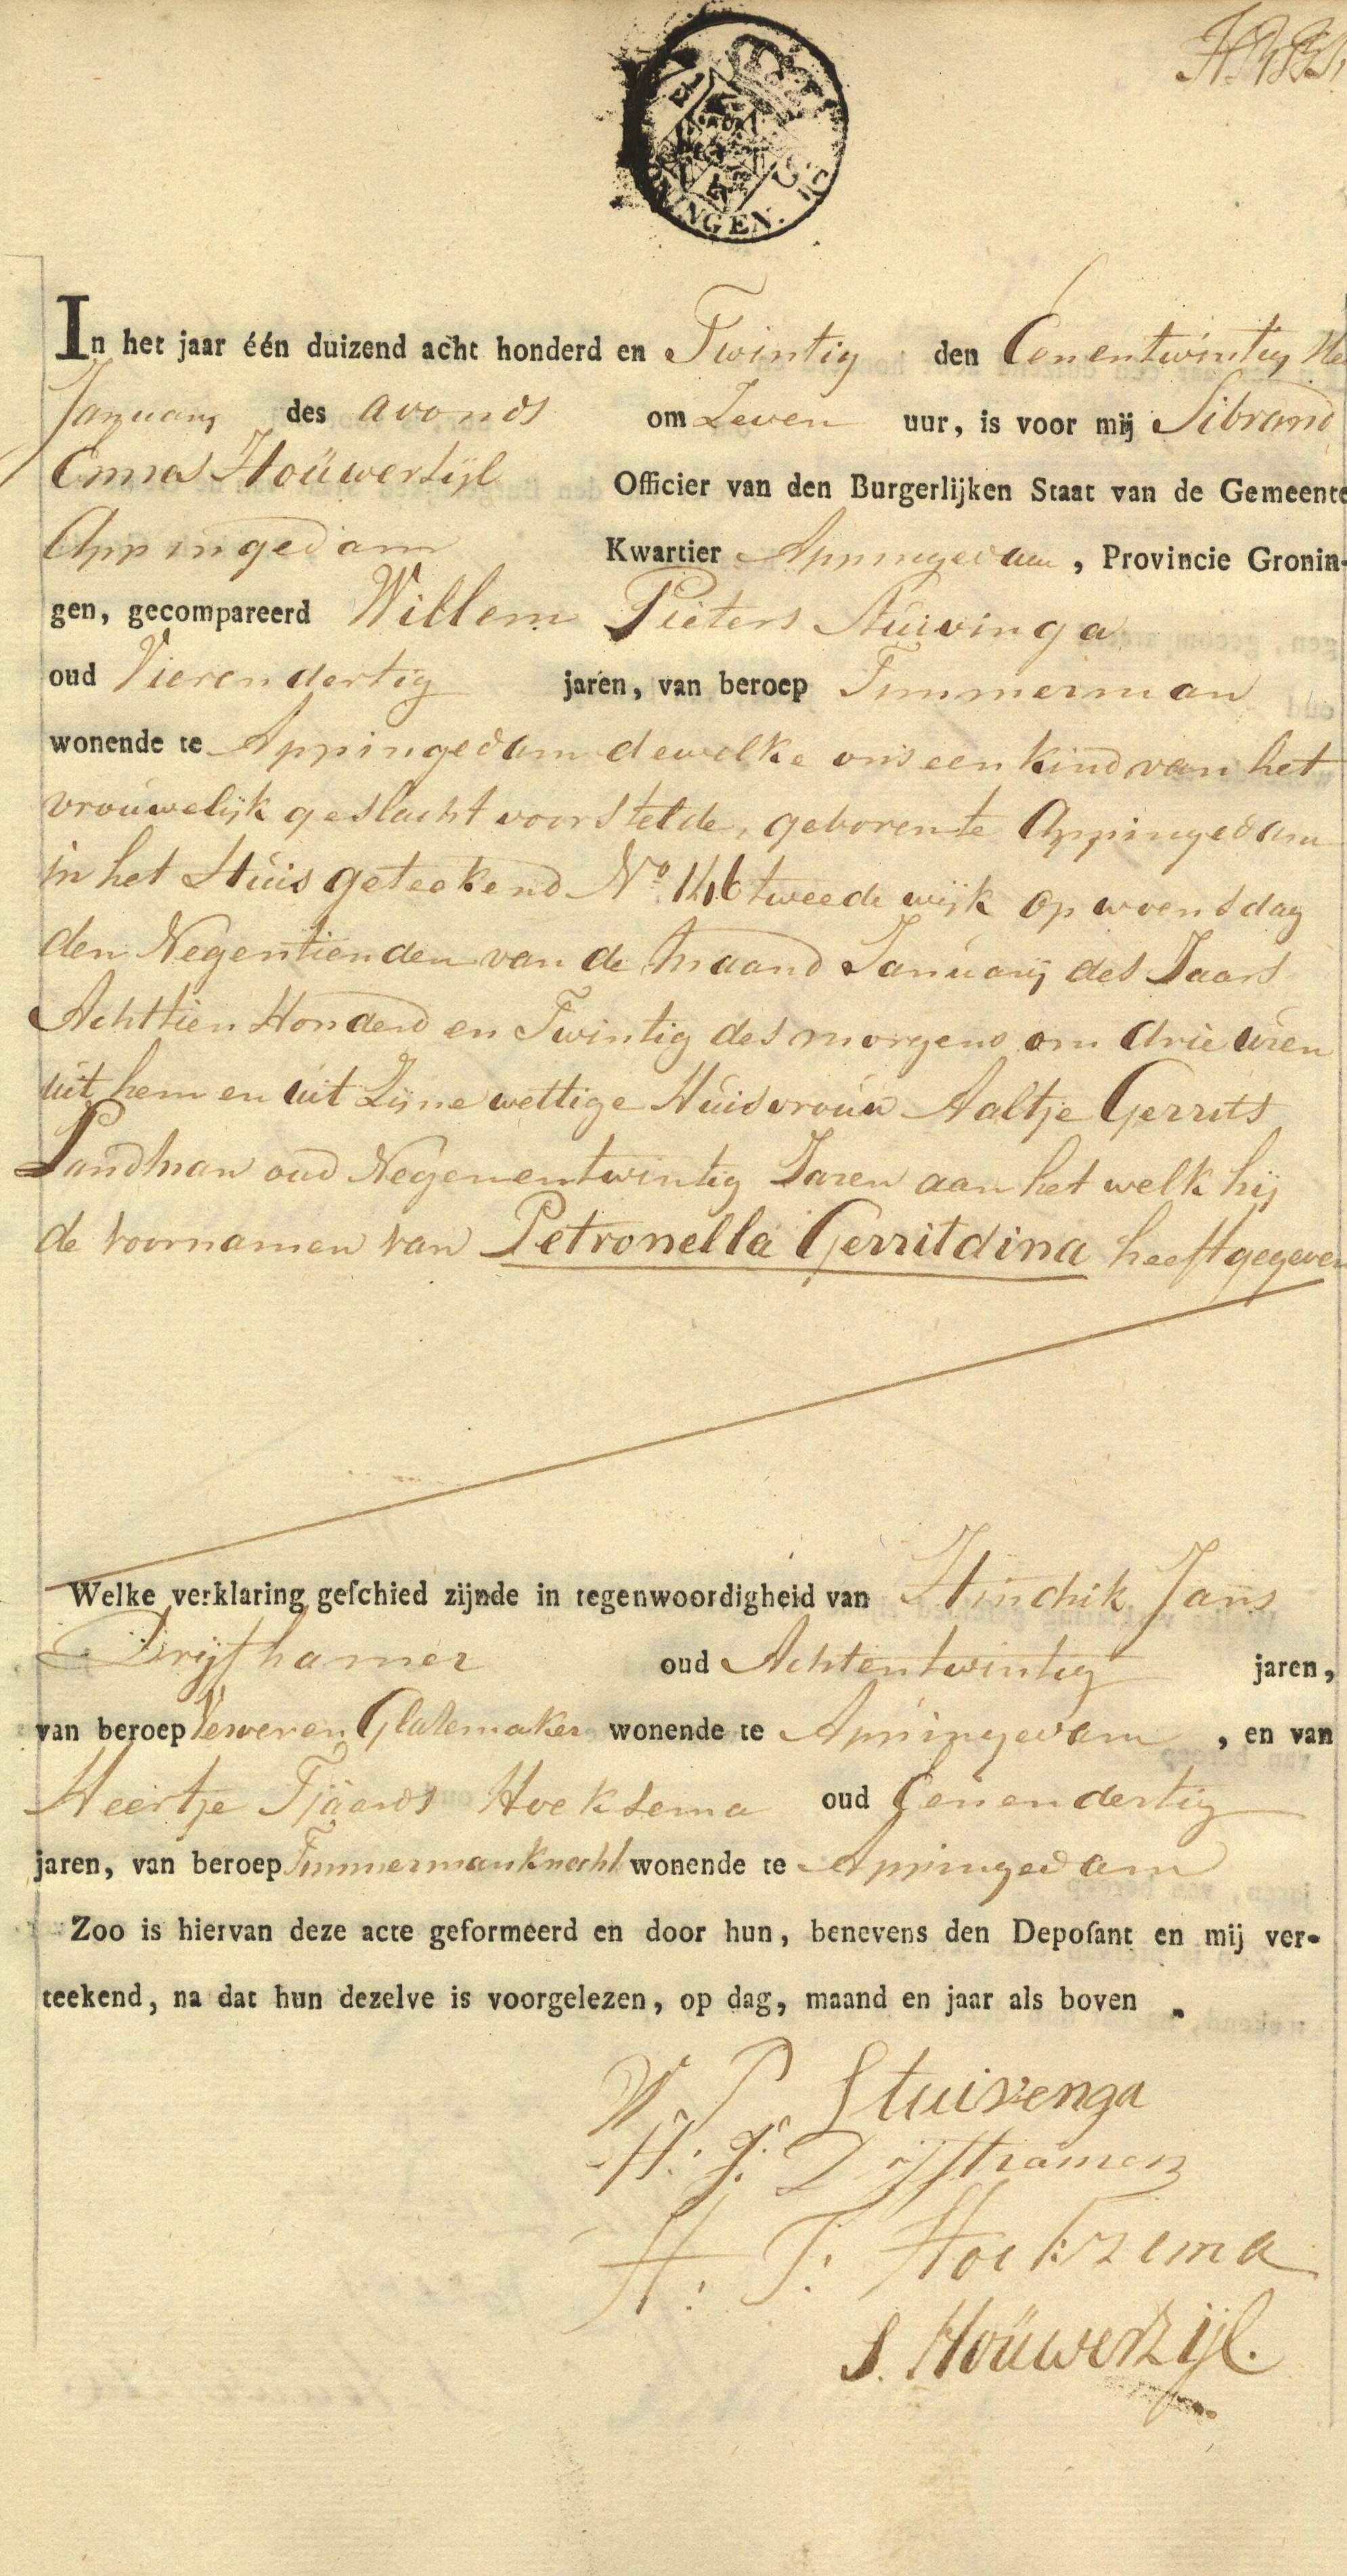 NINGEN.
In het jaar één duizend acht honderd en Twintig den Eenentwintig
January des avonds om Zeven uur, is voor mij Sibrand
Ennes Houwerzijl Officier van den Burgerlijken Staat van de Gemeente
Appingedam Kwartier Appingedam, Provincie Gronin-
gen, gecompareerd Willem Pieters Stuivinga
oud Vierendertig jaren, van beroep Timmerman
wonende te Appingedam dewelke ons een kind van het
vrouwelijk geslacht voorstelde, geboren te Appingedam
in het Huis geteekend No. 146 tweede wijk op woensdag
den Negentienden van de Maand January des Jaars
Achttien Honderd en Twintig des morgens om drie uren
uit hem en uit Zijne wettige Huisvrouw Aaltje Gerrits
Landman oud Negenentwintig Jaren aan het welk hij
de voornamen van Petronella Gerritdina heeft gegeven
Welke verklaring geſchied zijnde in tegenwoordigheid van Hindrik Jans
Drijfhamer oud Achtentwintig jaren,
van beroep Verwer en Glasemaker wonende te Appingedam, en van
Heertje Tjaards Hoeksema oud Eenendertig
jaren, van beroep Timmermanknecht wonende te Appingedam
Zoo is hiervan deze acte geformeerd en door hun, benevens den Depoſant en mij ver-
teekend, na dat hun dezelve is voorgelezen, op dag, maand en jaar als boven.
W P Stuivenga
H: J: Drijfhamer
H: T: Hoekzema
S. Houwerzijl.